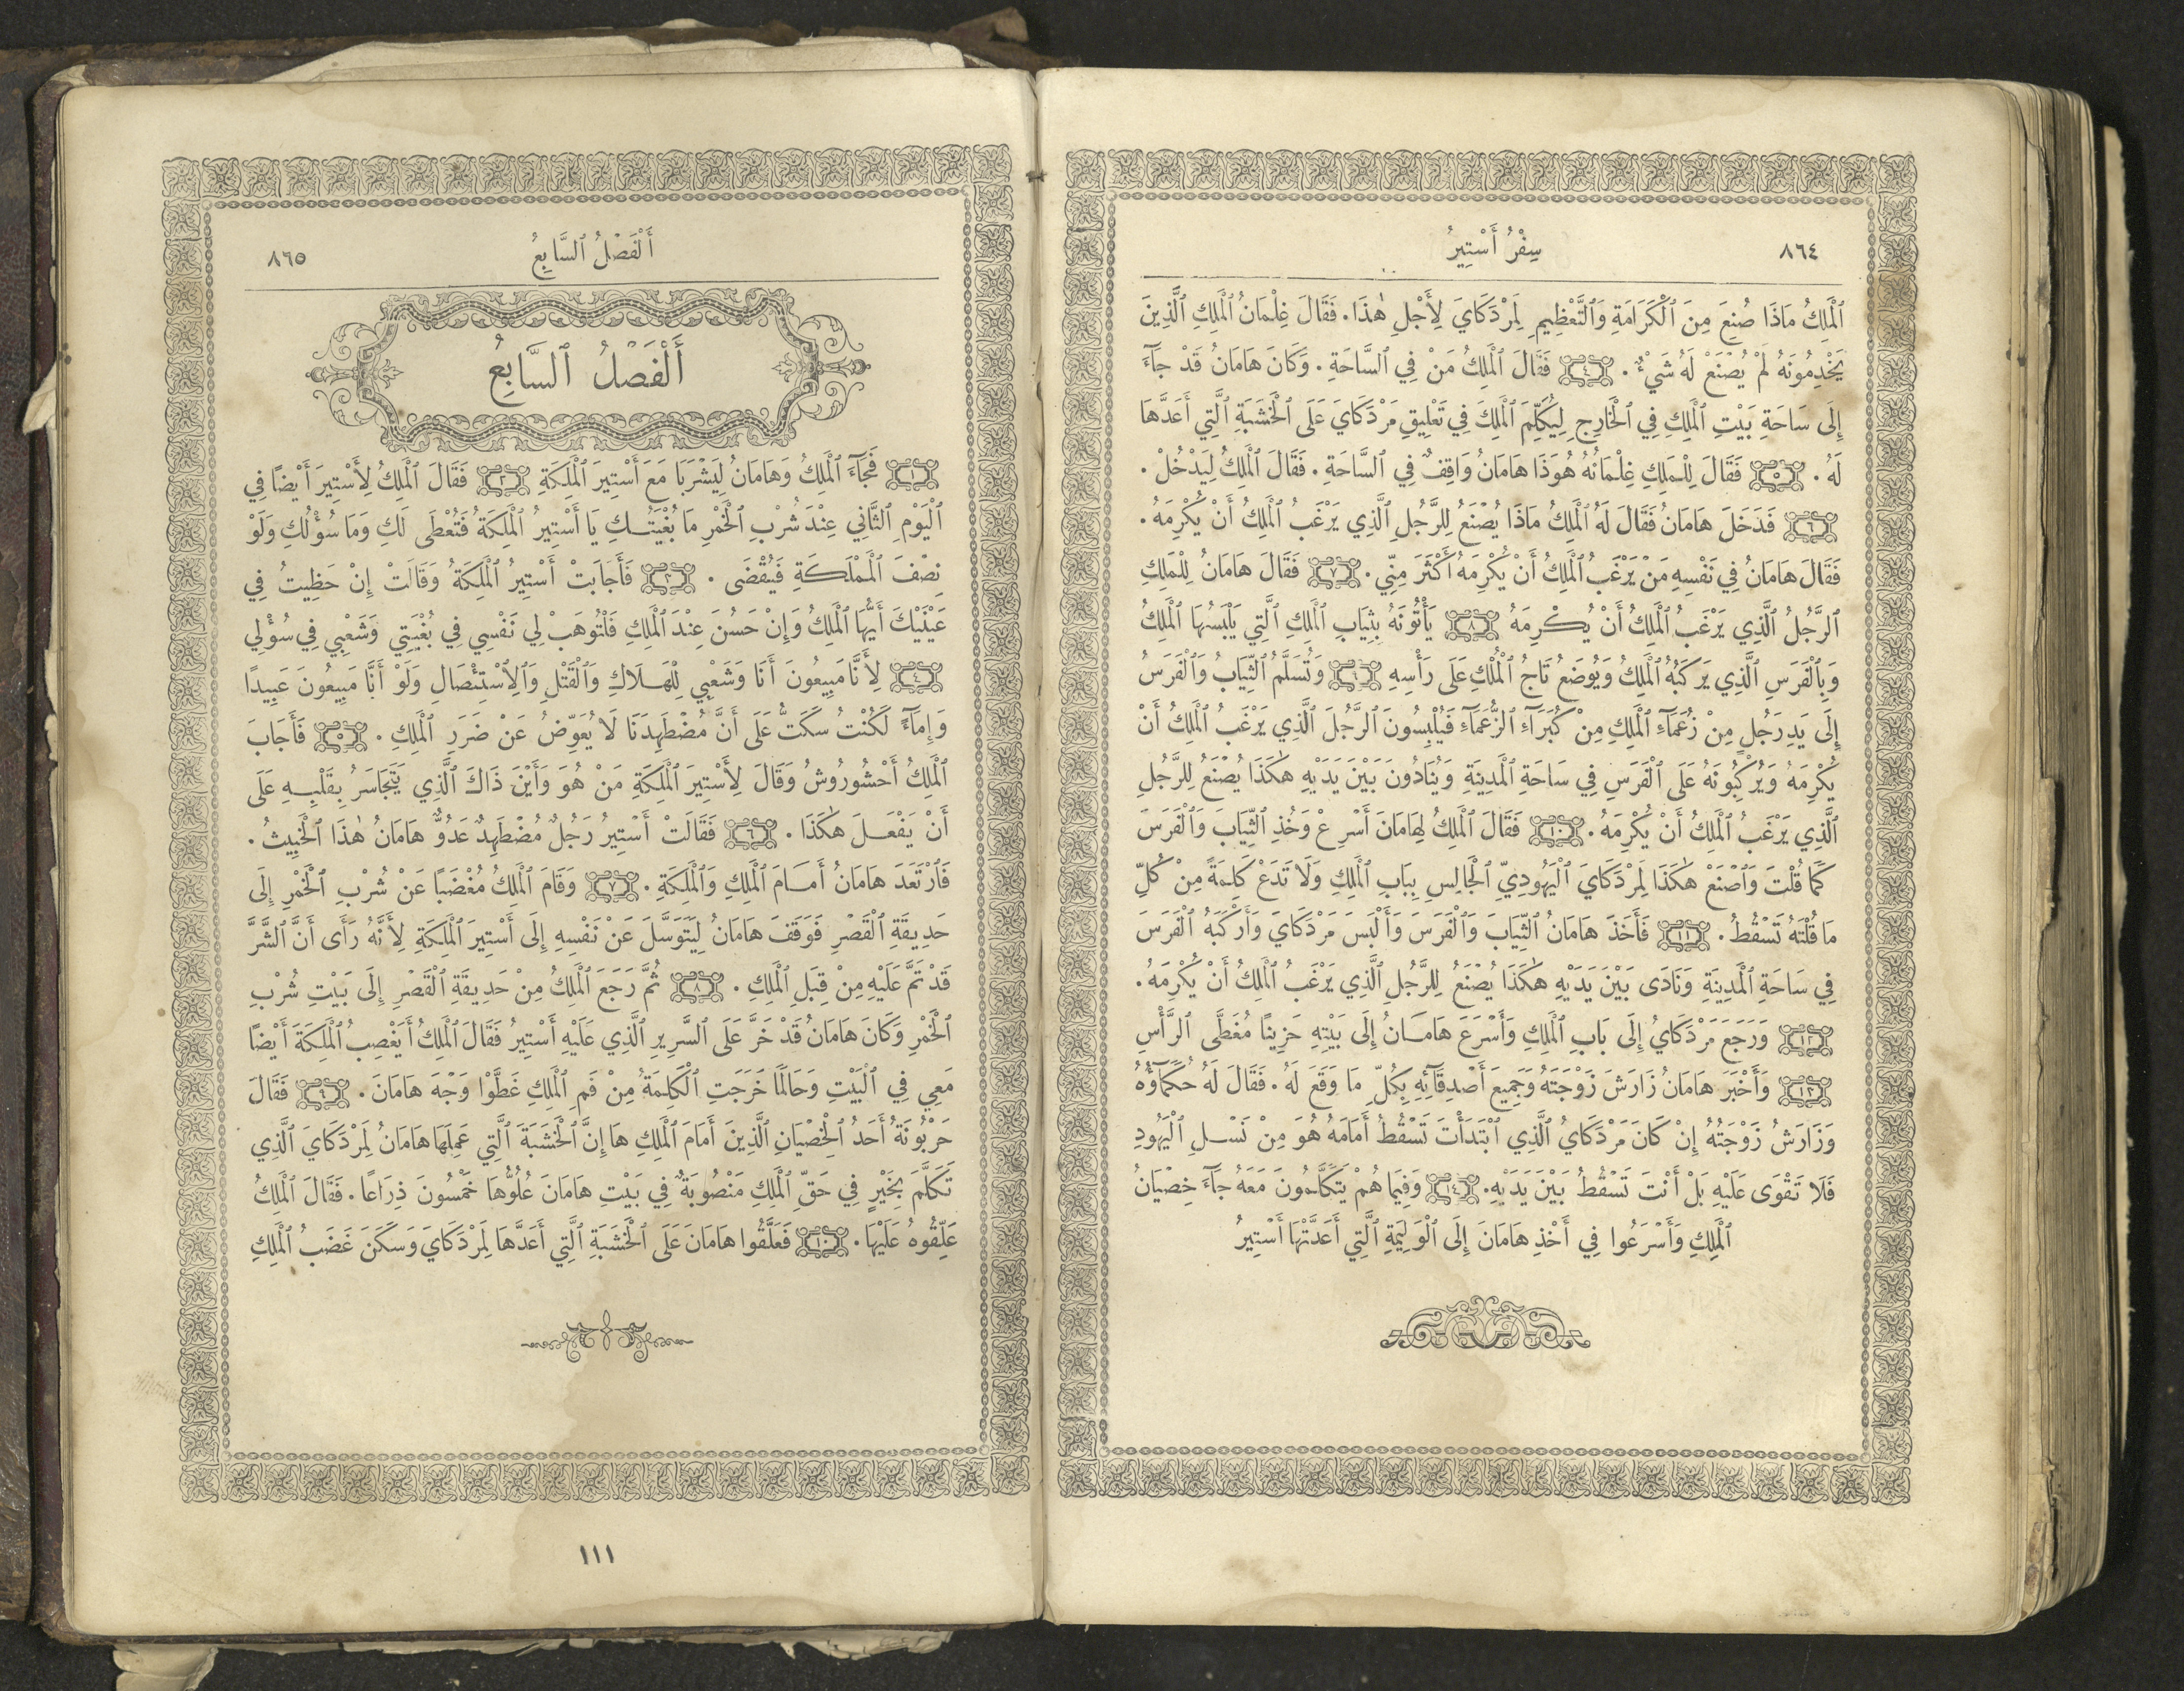 ٨٦٤
سِفْرُ أَسْتِيرُ
ٱلْمَلِكُ مَاذَا صُنِعَ مِنَ ٱلْكَرَامَةِ وَٱلتَّعْظِيمِ لِمَرْدَكَايَ لِأَجْلِ هٰذَا. فَقَالَ غِلْمَانُ ٱلْمَلِكِ ٱلَّذِينَ
يَخْدِمُونَهُ لَمْ يُصْنَعْ لَهُ شَيْءٌ. ٤ فَقَالَ ٱلْمَلِكُ مَنْ فِي ٱلسَّاحَةِ. وَكَانَ هَامَانُ قَدْ جَآءَ
إِلَى سَاحَةِ بَيْتِ ٱلْمَلِكِ فِي ٱلْخَارِجِ لِيُكَلِّمَ ٱلْمَلِكَ فِي تَعْلِيقِ مَرْدَكَايَ عَلَى ٱلْخَشَبَةِ ٱلَّتِي أَعَدَّهَا
لَهُ. ٥ فَقَالَ لِلْمَلِكِ غِلْمَانُهُ هُوَذَا هَامَانُ وَاقِفٌ فِي ٱلسَّاحَةِ. فَقَالَ ٱلْمَلِكُ لِيَدْخُلْ.
٦ فَدَخَلَ هَامَانُ فَقَالَ لَهُ ٱلْمَلِكُ مَاذَا يُصْنَعُ لِلرَّجُلِ ٱلَّذِي يَرْغَبُ ٱلْمَلِكُ أَنْ يُكْرِمَهُ.
فَقَالَ هَامَانُ فِي نَفْسِهِ مَنْ يَرْغَبُ ٱلْمَلِكُ أَنْ يُكْرِمَهُ أَكْثَرَ مِنِّي. ٧ فَقَالَ هَامَانُ لِلْمَلِكِ
ٱلرَّجُلُ ٱلَّذِي يَرْغَبُ ٱلْمَلِكُ أَنْ يُكْرِمَهُ ٨ يَأْتُونَهُ بِثِيَابِ ٱلْمَلِكِ ٱلَّتِي يَلْبَسُهَا ٱلْمَلِكُ
وَبِٱلْفَرَسِ ٱلَّذِي يَرْكَبُهُ ٱلْمَلِكُ وَيُوضَعُ تَاجُ ٱلْمُلْكِ عَلَى رَأْسِهِ ٩ وَتُسَلَّمُ ٱلثِّيَابُ وَٱلْفَرَسُ
إِلَى يَدِ رَجُلٍ مِنْ زُعَمَآءِ ٱلْمَلِكِ مِنْ كُبَرَآءِ ٱلزُّعَمَآءِ فَيُلْبِسُونَ ٱلرَّجُلَ ٱلَّذِي يَرْغَبُ ٱلْمَلِكُ أَنْ
يُكْرِمَهُ وَيُرْكِبُونَهُ عَلَى ٱلْفَرَسِ فِي سَاحَةِ ٱلْمَدِينَةِ وَيُنَادُونَ بَيْنَ يَدَيْهِ هٰكَذَا يُصْنَعُ لِلرَّجُلِ
ٱلَّذِي يَرْغَبُ ٱلْمَلِكُ أَنْ يُكْرِمَهُ. ١٠ فَقَالَ ٱلْمَلِكُ لِهَامَانَ أَسْرِعْ وَخُذِ ٱلثِّيَابَ وَٱلْفَرَسَ
كَمَا قُلْتَ وَٱصْنَعْ هٰكَذَا لِمَرْدَكَايَ ٱلْيَهُودِيِّ ٱلْجَالِسِ بِبَابِ ٱلْمَلِكِ وَلَا تَدَعْ كَلِمَةً مِنْ كُلِّ
مَا قُلْتَهُ تَسْقُطُ. ١١ فَأَخَذَ هَامَانُ ٱلثِّيَابَ وَٱلْفَرَسَ وَأَلْبَسَ مَرْدَكَايَ وَأَرْكَبَهُ ٱلْفَرَسَ
فِي سَاحَةِ ٱلْمَدِينَةِ وَنَادَى بَيْنَ يَدَيْهِ هٰكَذَا يُصْنَعُ لِلرَّجُلِ ٱلَّذِي يَرْغَبُ ٱلْمَلِكُ أَنْ يُكْرِمَهُ.
١٢ وَرَجَعَ مَرْدَكَايُ إِلَى بَابِ ٱلْمَلِكِ وَأَسْرَعَ هَامَانُ إِلَى بَيْتِهِ حَزِينًا مُغَطَّى ٱلرَّأْسِ
١٣ وَأَخْبَرَ هَامَانُ زَارَشَ زَوْجَتَهُ وَجَمِيعَ أَصْدِقَآئِهِ بِكُلِّ مَا وَقَعَ لَهُ. فَقَالَ لَهُ حُكَمَآؤُهُ
وَزَارَشُ زَوْجَتُهُ إِنْ كَانَ مَرْدَكَايُ ٱلَّذِي ٱبْتَدَأْتَ تَسْقُطُ أَمَامَهُ هُوَ مِنْ نَسْلِ ٱلْيَهُودِ
فَلَا تَقْوَى عَلَيْهِ بَلْ أَنْتَ تَسْقُطُ بَيْنَ يَدَيْهِ. ١٤ وَفِيمَا هُمْ يَتَكَلَّمُونَ مَعَهُ جَآءَ خِصْيَانُ
ٱلْمَلِكِ وَأَسْرَعُوا فِي أَخْذِ هَامَانَ إِلَى ٱلْوَلِيمَةِ ٱلَّتِي أَعَدَّتْهَا أَسْتِيرُ
أَلْفَصْلُ ٱلسَّابِعُ
٨٦٥
أَلْفَصْلُ ٱلسَّابِعُ
١ فَجَآءَ ٱلْمَلِكُ وَهَامَانُ لِيَشْرَبَا مَعَ أَسْتِيرَ ٱلْمَلِكَةِ ٢ فَقَالَ ٱلْمَلِكُ لِأَسْتِيرَ أَيْضًا فِي
ٱلْيَوْمِ ٱلثَّانِي عِنْدَ شُرْبِ ٱلْخَمْرِ مَا بُغْيَتُكِ يَا أَسْتِيرُ ٱلْمَلِكَةُ فَتُعْطَى لَكِ وَمَا سُؤْلُكِ وَلَوْ
نِصْفَ ٱلْمَمْلَكَةِ فَيُقْضَى. ٣ فَأَجَابَتْ أَسْتِيرُ ٱلْمَلِكَةُ وَقَالَتْ إِنْ حَظِيتُ فِي
عَيْنَيْكَ أَيُّهَا ٱلْمَلِكُ وَإِنْ حَسُنَ عِنْدَ ٱلْمَلِكِ فَلْتُوهَبْ لِي نَفْسِي فِي بُغْيَتِي وَشَعْبِي فِي سُؤْلِي
٤ لِأَنَّا مَبِيعُونَ أَنَا وَشَعْبِي لِلْهَلَاكِ وَٱلْقَتْلِ وَٱلِٱسْتِئْصَالِ وَلَوْ أَنَّا مَبِيعُونَ عَبِيدًا
وَإِمَآءً لَكُنْتُ سَكَتُّ عَلَى أَنَّ مُضْطَهِدَنَا لَا يُعَوِّضُ عَنْ ضَرَرِ ٱلْمَلِكِ. ٥ فَأَجَابَ
ٱلْمَلِكُ أَحْشُورُوشُ وَقَالَ لِأَسْتِيرَ ٱلْمَلِكَةِ مَنْ هُوَ وَأَيْنَ ذَاكَ ٱلَّذِي يَتَجَاسَرُ بِقَلْبِهِ عَلَى
أَنْ يَفْعَلَ هٰكَذَا. ٦ فَقَالَتْ أَسْتِيرُ رَجُلٌ مُضْطَهِدٌ عَدُوٌّ هَامَانُ هٰذَا ٱلْخَبِيثُ.
فَٱرْتَعَدَ هَامَانُ أَمَامَ ٱلْمَلِكِ وَٱلْمَلِكَةِ. ٧ وَقَامَ ٱلْمَلِكُ مُغْضَبًا عَنْ شُرْبِ ٱلْخَمْرِ إِلَى
حَدِيقَةِ ٱلْقَصْرِ فَوَقَفَ هَامَانُ لِيَتَوَسَّلَ عَنْ نَفْسِهِ إِلَى أَسْتِيرَ ٱلْمَلِكَةِ لِأَنَّهُ رَأَى أَنَّ ٱلشَّرَّ
قَدْ تَمَّ عَلَيْهِ مِنْ قِبَلِ ٱلْمَلِكِ. ٨ ثُمَّ رَجَعَ ٱلْمَلِكُ مِنْ حَدِيقَةِ ٱلْقَصْرِ إِلَى بَيْتِ شُرْبِ
ٱلْخَمْرِ وَكَانَ هَامَانُ قَدْ خَرَّ عَلَى ٱلسَّرِيرِ ٱلَّذِي عَلَيْهِ أَسْتِيرُ فَقَالَ ٱلْمَلِكُ أَيَغْصِبُ ٱلْمَلِكَةَ أَيْضًا
مَعِي فِي ٱلْبَيْتِ وَحَالَمَا خَرَجَتِ ٱلْكَلِمَةُ مِنْ فَمِ ٱلْمَلِكِ غَطَّوْا وَجْهَ هَامَانَ. ٩ فَقَالَ
حَرْبُونَةُ أَحَدُ ٱلْخِصْيَانِ ٱلَّذِينَ أَمَامَ ٱلْمَلِكِ هَا إِنَّ ٱلْخَشَبَةَ ٱلَّتِي عَمِلَهَا هَامَانُ لِمَرْدَكَايَ ٱلَّذِي
تَكَلَّمَ بِخَيْرٍ فِي حَقِّ ٱلْمَلِكِ مَنْصُوبَةٌ فِي بَيْتِ هَامَانَ عُلُوُّهَا خَمْسُونَ ذِرَاعًا. فَقَالَ ٱلْمَلِكُ
عَلِّقُوهُ عَلَيْهَا. ١٠ فَعَلَّقُوا هَامَانَ عَلَى ٱلْخَشَبَةِ ٱلَّتِي أَعَدَّهَا لِمَرْدَكَايَ وَسَكَنَ غَضَبُ ٱلْمَلِكِ
١١١